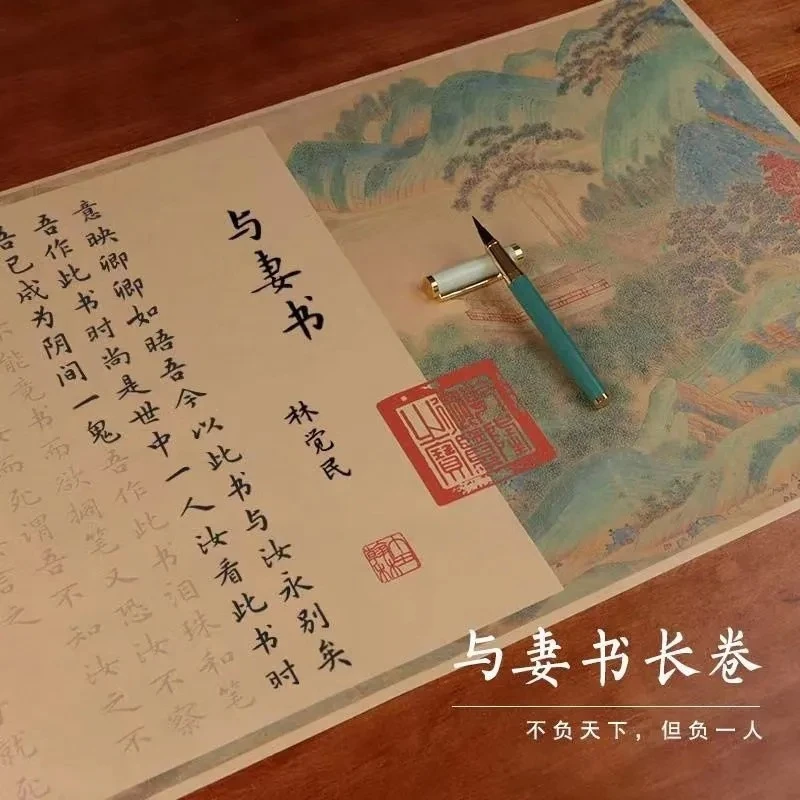 与妻书
林觉民
意映卿卿如晤吾今以此书与汝永别矣
吾作此书时尚是世中一人汝看此书时
吾已成为阴间一鬼吾作此书泪珠和笔
不能竟书而欲搁笔又恐汝不察
而死谓吾不知汝之不
言之
就死
与妻书长卷
不负天下，但负一人